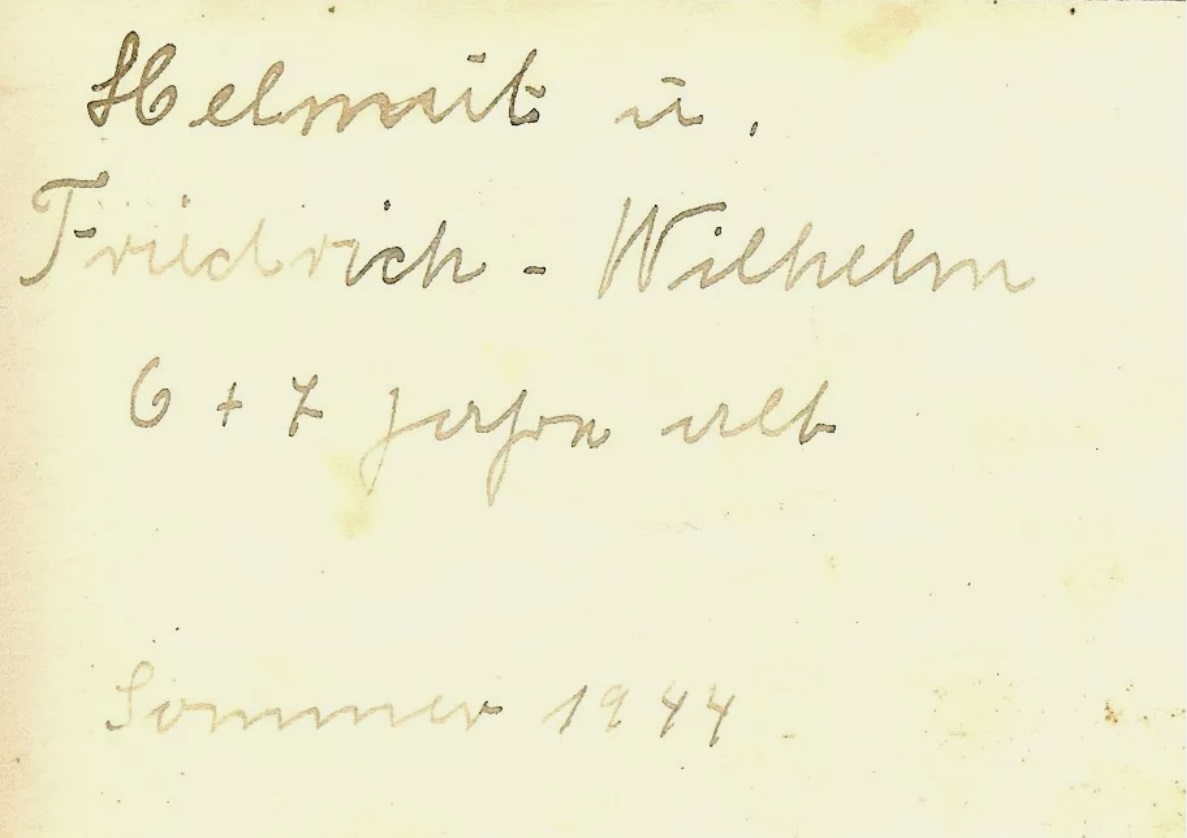 Helmut u.
Friedrich-Wilhelm
6 + 7 Jahre alt
Sommer 1944